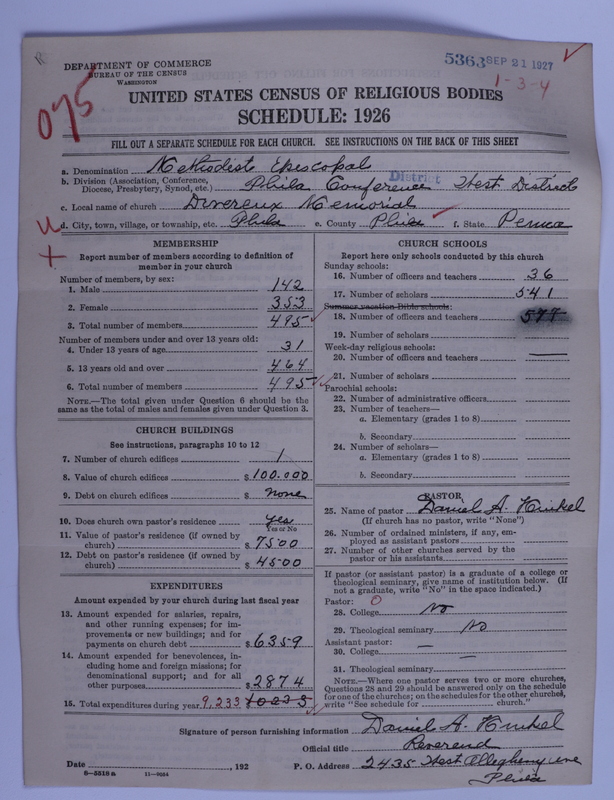 DEPARTMENT OF COMMERCE
BUREAU OF THE CENSUS
WASHINGTON
5363 SEP 21 1927
1-3-4
075
UNITED STATES CENSUS OF RELIGIOUS BODIES
SCHEDULE: 1926
FILL OUT A SEPARATE SCHEDULE FOR EACH CHURCH. SEE INSTRUCTIONS ON THE BACK OF THIS SHEET
a. Denomination Methodist Episcopal
b. Division (Association, Conference, Diocese, Presbytery, Synod, etc.) Phila Conference West District
District
c. Local name of church Devereux Memorial
d. City, town, village, or township, etc. Phila e. County Phila f. State Penna
MEMBERSHIP
Report number of members according to definition of
member in your church
Number of members, by sex:
1. Male 142
2. Female 353
3. Total number of members 495
Number of members under and over 13 years old:
4. Under 13 years of age 31
5. 13 years old and over 464
6. Total number of members 495
NOTE.—The total given under Question 6 should be the
same as the total of males and females given under Question 3.
CHURCH BUILDINGS
See instructions, paragraphs 10 to 12
7. Number of church edifices 1
8. Value of church edifices $ 100.000
9. Debt on church edifices $ none
10. Does church own pastor's residence yes
Yes or No
11. Value of pastor's residence (if owned by
church) $ 7500
12. Debt on pastor's residence (if owned by
church) $ 4500
EXPENDITURES
Amount expended by your church during last fiscal year
13. Amount expended for salaries, repairs,
and other running expenses; for im-
provements or new buildings; and for
payments on church debt $ 6359
14. Amount expended for benevolences, in-
cluding home and foreign missions; for
denominational support; and for all
other purposes $ 2874
15. Total expenditures during year 9,233 10233
CHURCH SCHOOLS
Report here only schools conducted by this church
Sunday schools:
16. Number of officers and teachers 36
17. Number of scholars 541
Summer vacation Bible schools:
18. Number of officers and teachers 577
19. Number of scholars
Week-day religious schools:
20. Number of officers and teachers
21. Number of scholars
Parochial schools:
22. Number of administrative officers
23. Number of teachers—
a. Elementary (grades 1 to 8)
b. Secondary
24. Number of scholars—
a. Elementary (grades 1 to 8)
b. Secondary
PASTOR
25. Name of pastor Daniel A. Kunkel
(If church has no pastor, write "None")
26. Number of ordained ministers, if any, em-
ployed as assistant pastors
27. Number of other churches served by the
pastor or his assistants
If pastor (or assistant pastor) is a graduate of a college or
theological seminary, give name of institution below. (If
not a graduate, write "No" in the space indicated.)
Pastor: 0
28. College No
29. Theological seminary No
Assistant pastor:
30. College
31. Theological seminary
NOTE.—Where one pastor serves two or more churches,
Questions 28 and 29 should be answered only on the schedule
for one of the churches; on the schedules for the other churches,
write "See schedule for church."
Signature of person furnishing information Daniel A. Kunkel
Official title Reverend
Date , 192 P. O. Address 2435 West Allegheny ave
Phila
8-5310 a 11-9024